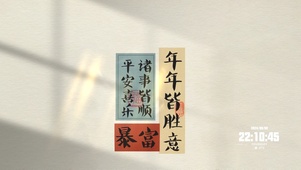 年年皆胜意
诸事皆顺
平安喜乐
暴富
22:10:45